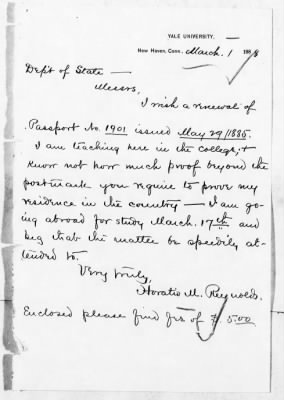 YALE UNIVERSITY.
New Haven, Conn. March. 1 1888
Dep't of State —
Messrs,
I wish a renewal of
Passport No. 1901 issued May 29/1885.
I am teaching here in the College, &
know not how much proof beyond the
postmark you require to prove my
residence in the country — I am go-
ing abroad for study March. 17th and
beg that the matter be speedily at-
tended to.
Very truly,
Horatio M. Reynolds.
Enclosed please find of $5.00